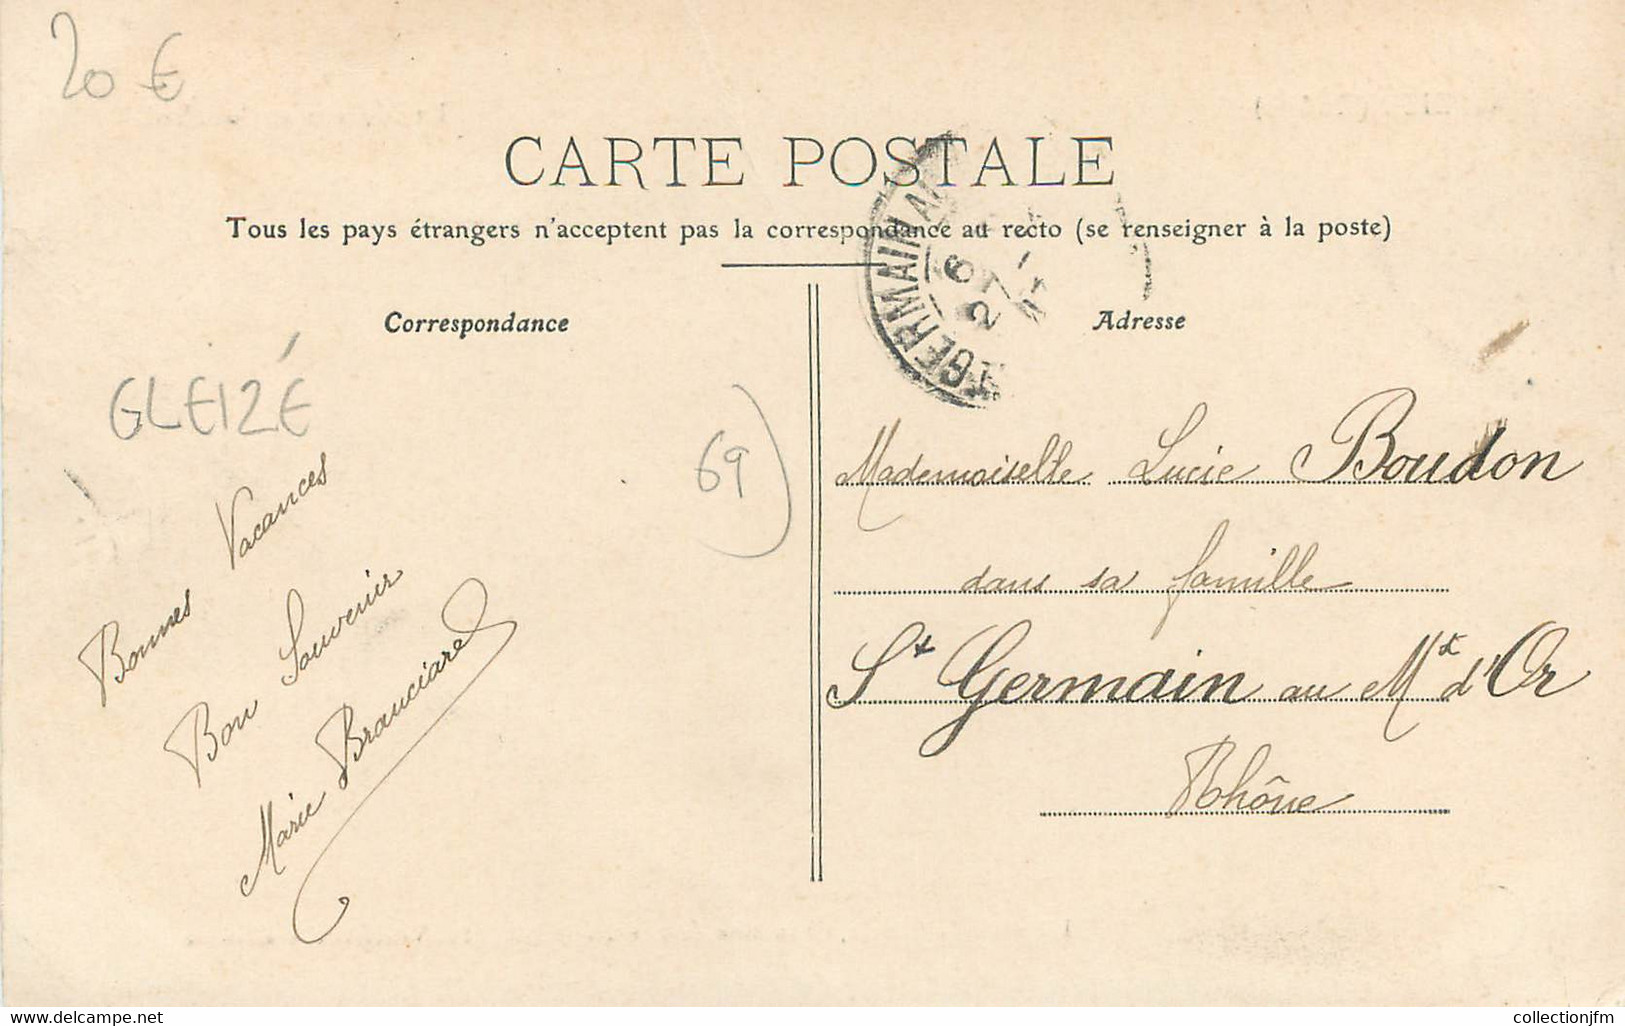 20 €
CARTE POSTALE
Tous les pays étrangers n'acceptent pas la correspondance au recto (se renseigner à la poste)
Correspondance
GLEIZÉ
69
Bonnes Vacances
Bon Souvenir
Marie Branciard
Adresse
Mademoiselle Lucie Boudon
dans sa famille
St Germain au Mt d'Or
Rhône
www.delcampe.net
collectionjfm